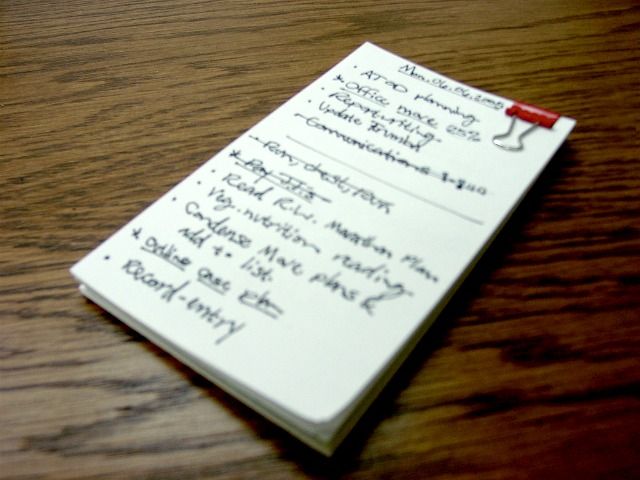 Mon. 06.06.2005
· ATOD planning
* Office move 25%
· Report writing
· Update
- Communications
- Run, chest,
*
· Read R.W. Marathon Plan
· Veg. nutrition reading
· Condense Move plans &
Add to list
* Online
· Record-entry